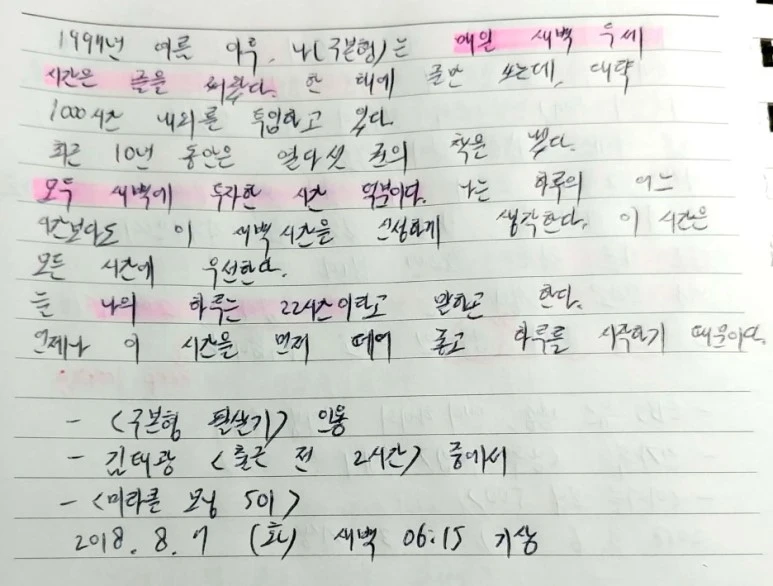 1997년 여름 이후, 나(구본형)는 매일 새벽 두세
시간은 글을 써왔다. 한 해에 글만 쓰는데, 대략
1000시간 내외를 투입하고 있다.
최근 10년 동안은 열다섯 권의 책을 썼다.
모두 새벽에 투자한 시간 덕분이다. 나는 하루의 어느
시간보다도 이 새벽시간을 신성하게 생각한다. 이 시간은
모든 시간에 우선한다.
늘 나의 하루는 22시간이라고 말하곤 한다.
언제나 이 시간을 먼저 떼어 놓고 하루를 시작하기 때문이다.
- <구본형 필살기> 인용
- 김태광 <출근 전 2시간> 중에서
- <미라클 모닝 501>
2018. 8. 7 (화) 새벽 06:15 기상